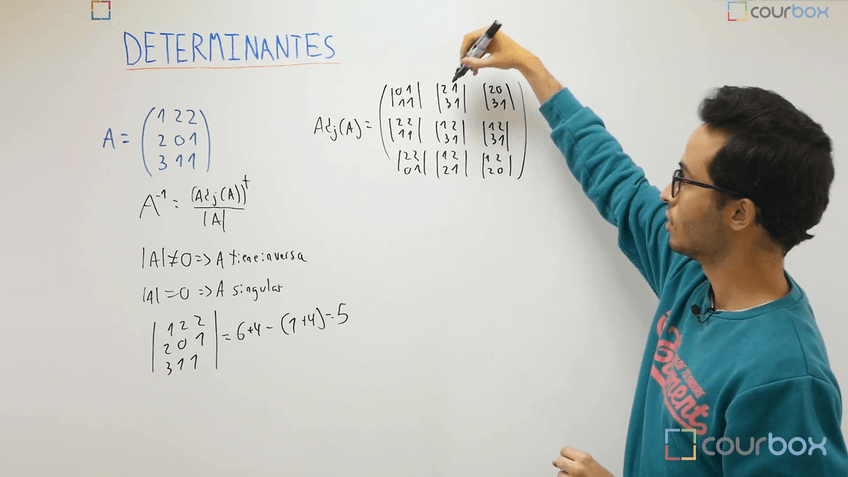 courbox
DETERMINANTES
A = (1 2 2
2 0 1
3 1 1)
A⁻¹ = (Adj(A))ᵗ / |A|
|A| ≠ 0 => A tiene inversa
|A| = 0 => A singular
|1 2 2
2 0 1
3 1 1| = 6+4 - (1+4) = 5
Adj(A) = (
|0 1 |2 1 |2 0
1 1| 3 1| 3 1|
|2 2 |1 2 |1 2
1 1| 3 1| 3 1|
|2 2 |1 2 |1 2
0 1| 2 1| 2 0|
)
courbox